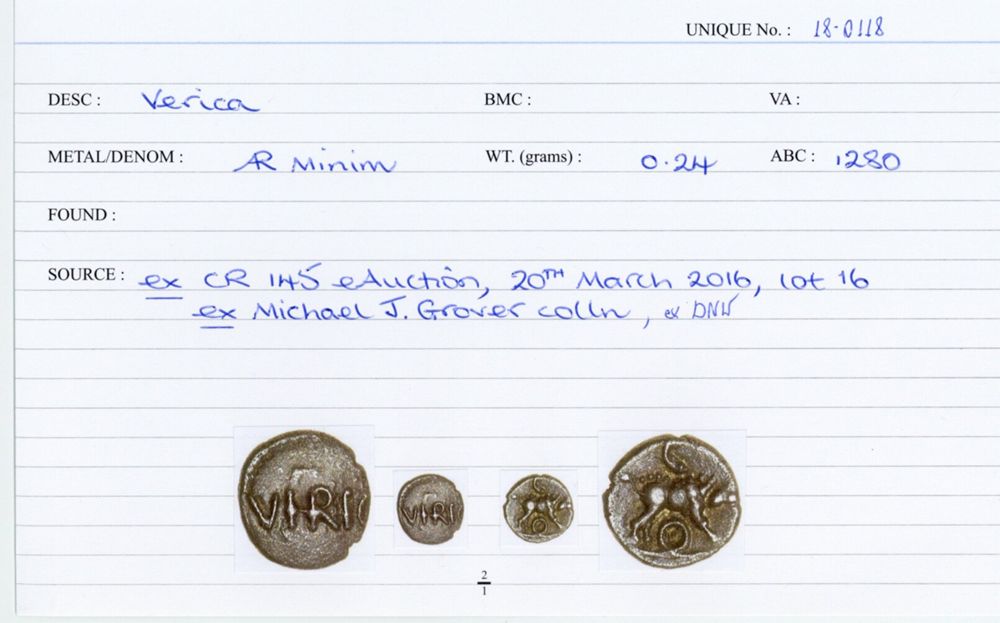 UNIQUE No. : 18-0118
DESC : Verica BMC : VA :
METAL/DENOM : AR Minim WT. (grams) : 0.24 ABC : 1280
FOUND :
SOURCE : ex CR 145 eAuction, 20TH March 2016, lot 16
ex Michael J. Grover colln, ex DNW
VIRI VIRI
2
1